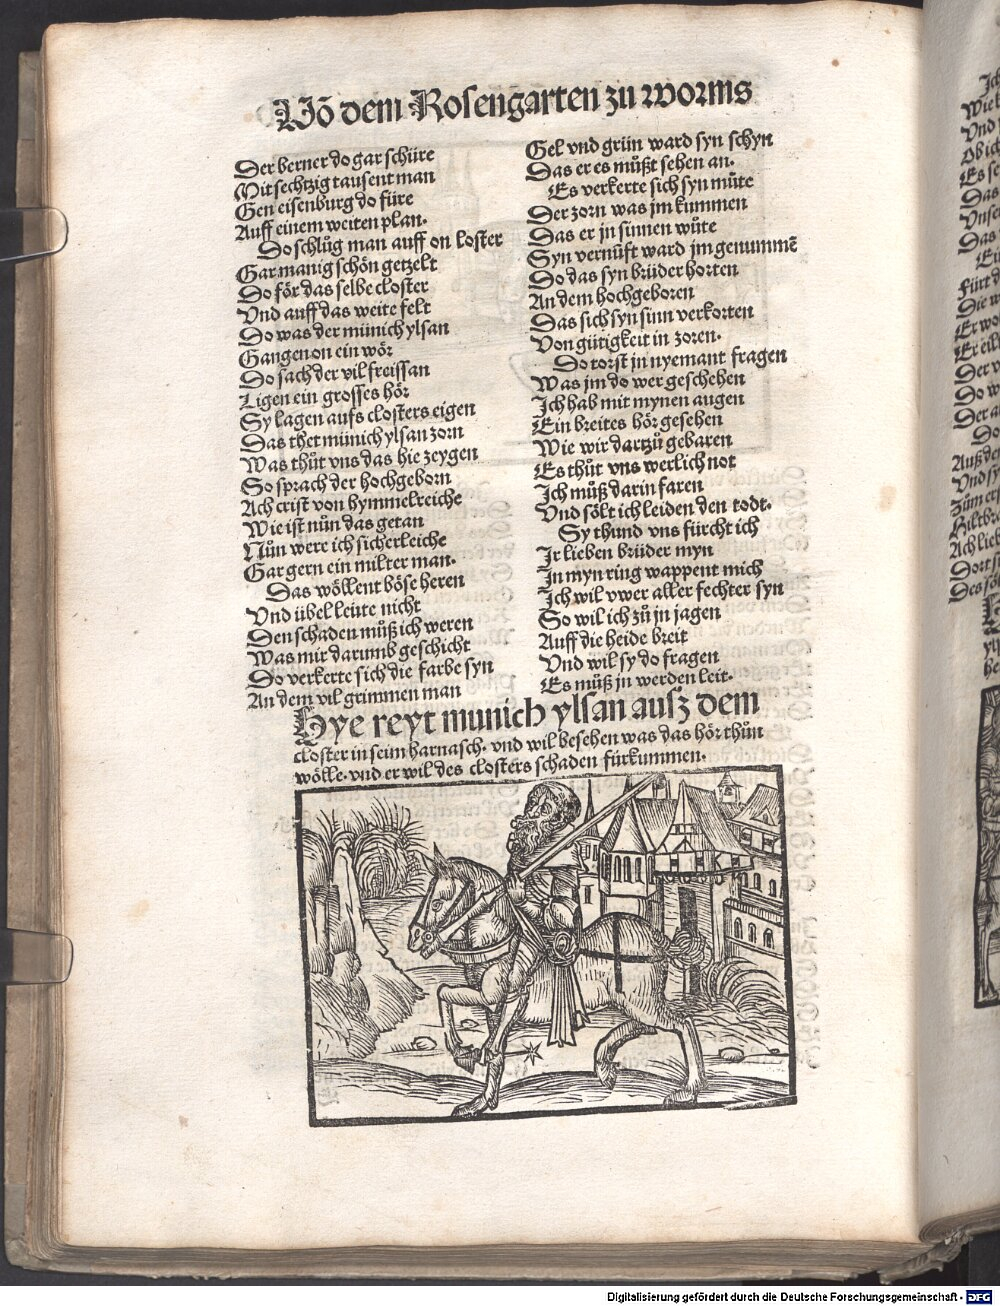 Uō dem Rosengarten zu worms
Der berner do gar schiere
Mit sechtzig tausent man
Gen eisenburg do füre
Auff einem weiten plan.
Do schlüg man auff on loster
Gar manig schön getzelt
Do för das selbe closter
Vnd auff das weite felt
Do was der münich ylsan
Gangen on ein wör
Do sach der vil freissan
Ligen ein grosses hör
Sy lagen aufs closters eigen
Das thet münich ylsan zorn
Was thůt vns das hie zeygen
So sprach der hochgeborn
Ach crist von hymmelreiche
Wie ist nůn das getan
Nůn were ich sicherleiche
Gar gern ein milter man.
Das wöllent böse heren
Vnd übel leüte nicht
Den schaden můß ich weren
Was mir darumb geschicht
Do verkerte sich die farbe syn
An dem vil grimmen man
Gel vnd grün ward syn schyn
Das er es můßt sehen an.
Es verkerte sich syn můte
Der zorn was jm kummen
Das er jn sinnen wůte
Syn vernůft ward jm genummē
Do das syn brüder horten
An dem hochgeboren
Das sich syn sinn verkorten
Von gütigkeit in zoren.
Do torst jn nyemant fragen
Was jm do wer geschehen
Jch hab mit mynen augen
Ein breites hör gesehen
Wie wir dartzů gebaren
Es thůt vns werlich not
Jch můß darin faren
Vnd sölt ich leiden den todt.
Sy thund vns fürcht ich
Jr lieben brüder myn
Jn myn ring wappent mich
Jch wil vwer aller fechter syn
So wil ich zů jn jagen
Auff die heide breit
Vnd wil sy do fragen
Es můß jn werden leit.
Hye reyt munich ylsan ausz dem
closter in seim harnasch. vnd wil besehen was das hör thůn
wölle. vnd er wil des closters schaden fürkummen.
Digitalisierung gefördert durch die Deutsche Forschungsgemeinschaft - DFG